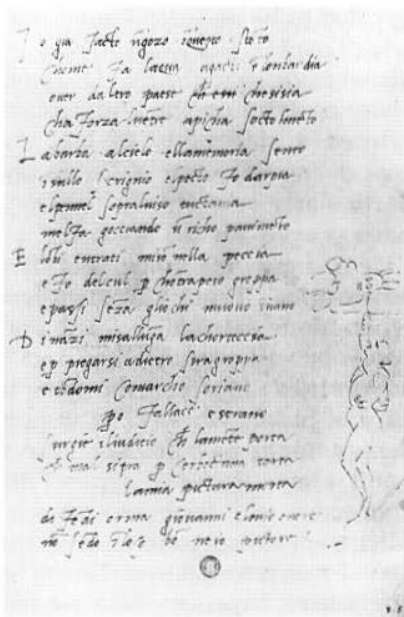 I o gia facto ũgozo ĩquesto stẽto
chome fa laqua agacti ĩ lonbardia
over daltro paese che essi chesisia
cha forza luẽtre apicha socto lmẽto
La barba alcielo ellamemoria sento
ĩsullo scrignio elpecto fo darpia
elpennel sopraluiso tuctauia
melfa gocciando ũ richo pauimẽto
E lobi entrati miso nella peccia
e fo delcul p chotrapeso groppa
epassi seza gliochi muouo inuano
Dinãzi misalluga lachorteccia
ep piegarsi adietro siragroppa
e tẽdomi comarcho soriano
po fallace e strano
surgie iliuditio ch lamẽte porta
ch mal sitra p cerboctana torta
lamia pictura morta
difẽdi orma giovanni elmio onore
nõ sẽdo ĩ loco bõ ne io pictore